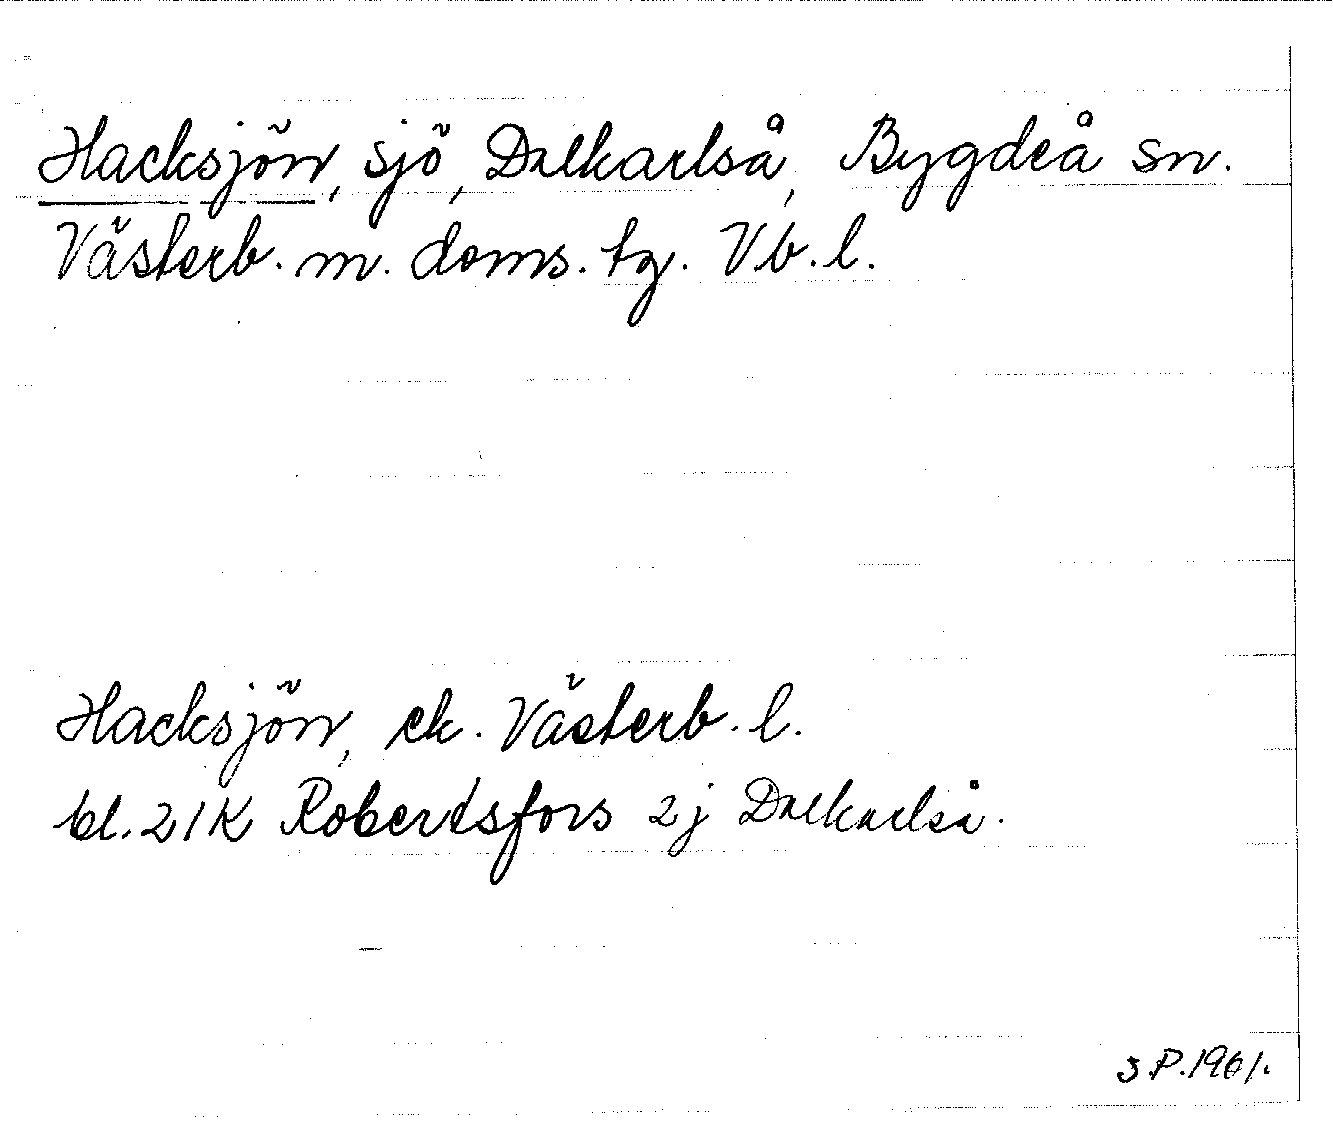 Hacksjön, sjö, Dalkarlså, Bygdeå sn.
Västerb. m. doms. tg. Vb. l.
Hacksjön, ek. Västerb. l.
bl. 21K Robertsfors 2j Dalkarlså.
S.P. 1961.